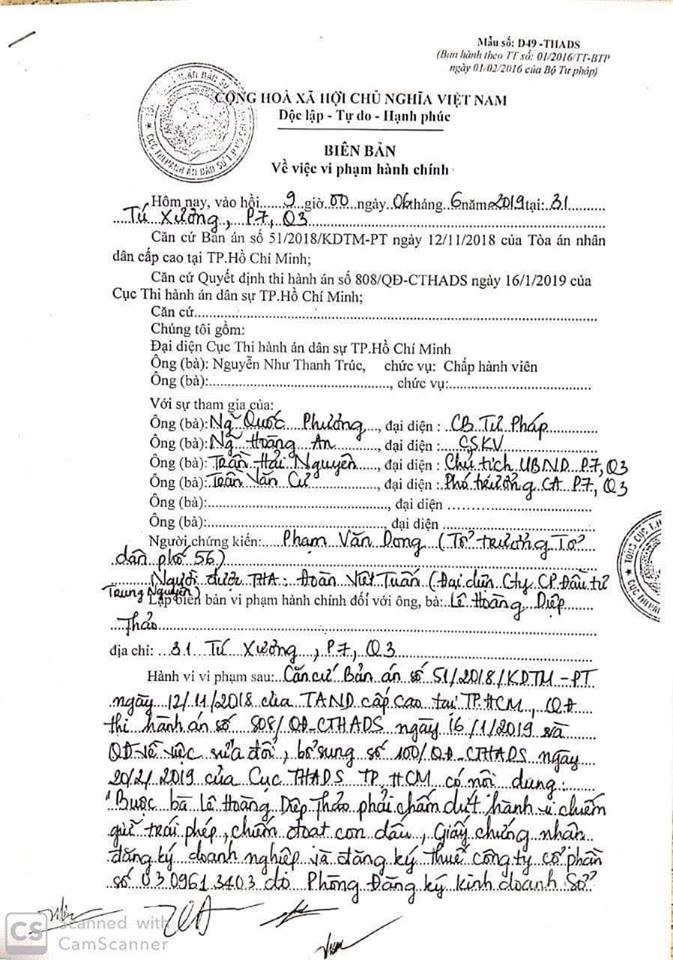 Mẫu số: D49 -THADS
(Ban hành theo TT số: 01/2016/TT-BTP
ngày 01/02/2016 của Bộ Tư pháp)
CỘNG HOÀ XÃ HỘI CHỦ NGHĨA VIỆT NAM
Độc lập - Tự do - Hạnh phúc
BIÊN BẢN
Về việc vi phạm hành chính
Hôm nay, vào hồi 9 giờ 00 ngày 06 tháng 6 năm 2019 tại: 31
Tú Xương, P7, Q3
Căn cứ Bản án số 51/2018/KDTM-PT ngày 12/11/2018 của Tòa án nhân
dân cấp cao tại TP.Hồ Chí Minh;
Căn cứ Quyết định thi hành án số 808/QĐ-CTHADS ngày 16/1/2019 của
Cục Thi hành án dân sự TP.Hồ Chí Minh;
Căn cứ
Chúng tôi gồm:
Đại diện Cục Thi hành án dân sự TP.Hồ Chí Minh
Ông (bà): Nguyễn Như Thanh Trúc, chức vụ: Chấp hành viên
Ông (bà): , chức vụ:
Với sự tham gia của:
Ông (bà): Ng Quốc Phương, đại diện : CB Tư Pháp
Ông (bà): Ng Hoàng An, đại diện : CSKV
Ông (bà): Trần Hải Nguyên, đại diện : Chủ tịch UBND P7, Q3
Ông (bà): Trần Văn Cư, đại diện : Phó trưởng CA P.7, Q3
Ông (bà): , đại diện
Ông (bà): , đại diện
Người chứng kiến: Phạm Văn Dong (Tổ trưởng Tổ
dân phố 56)
Người được THA: Đoàn Việt Tuấn (Đại diện Cty CP Đầu tư
Trung Nguyên)
Lập biên bản vi phạm hành chính đối với ông, bà: Lê Hoàng Diệp
Thảo
địa chỉ: 31 Tú Xương, P7, Q3
Hành vi vi phạm sau: Căn cứ Bản án số 51/2018/KDTM-PT
ngày 12/11/2018 của TAND cấp cao tại TP.HCM, QĐ
thi hành án số 808/QĐ-CTHADS ngày 16/1/2019 và
QĐ về việc sửa đổi, bổ sung số 100/QĐ-CTHADS ngày
20/2/2019 của Cục THADS TP.HCM có nội dung:
"Buộc bà Lê Hoàng Diệp Thảo phải chấm dứt hành vi chiếm
giữ trái phép, chiếm đoạt con dấu, Giấy chứng nhận
đăng ký doanh nghiệp và đăng ký thuế công ty cổ phần
số 0309613403 do Phòng Đăng ký kinh doanh Sở
CS Scanned with
CamScanner